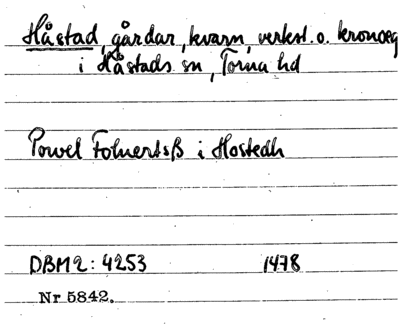 Håstad, gårdar, kvarn, verkst. o. kronoeg
i Håstads sn, Torna hd
Powel Folnertsß i Hostedh
DBM2: 4253 1478
Nr 5842.